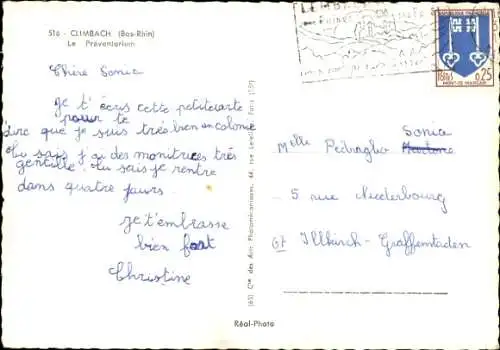 516 - CLIMBACH (Bas-Rhin)
Le Préventorium
Chère Sonia
Je t'écris cette petite carte
pour te
dire que je suis très bien en colonie
tu sais j'ai des monitrices très
gentille. tu sais je rentre
dans quatre jours.
je t'embrasse
bien fort
Christine
(65) Cie des Arts Photomécaniques, 44, rue Paris (15e)
Réal-Photo
LEMBACH
REPUBLIQUE FRANCAISE
POSTES 0,25
MONT-DE-MARSAN
Sonia
Melle Pedraglio
5 rue Niederbourg
67 Illkirch-Graffenstaden